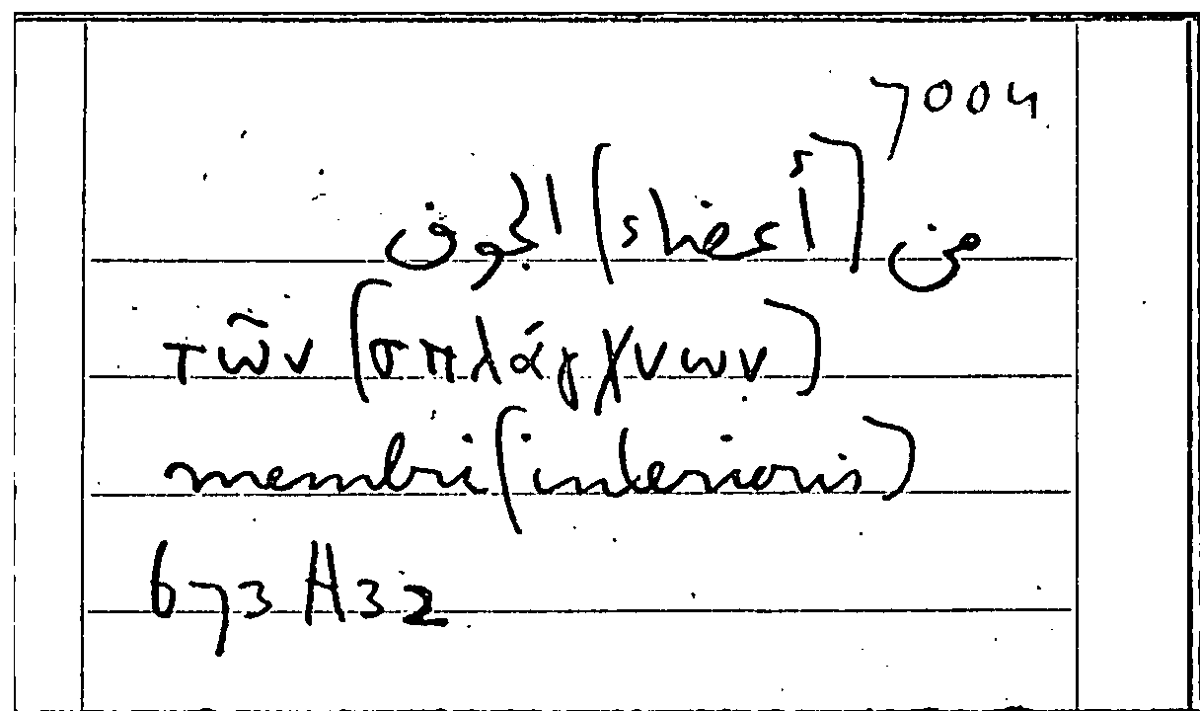 7004
من (أعضاء) الجوف
τῶν (σπλάγχνων)
membri (interioris)
673 A32